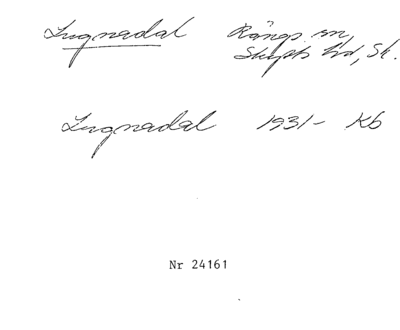 Lugnadal Rängs sn,
Skytts hd, Sk.
Lugnadal 1931- Kb
Nr 24161